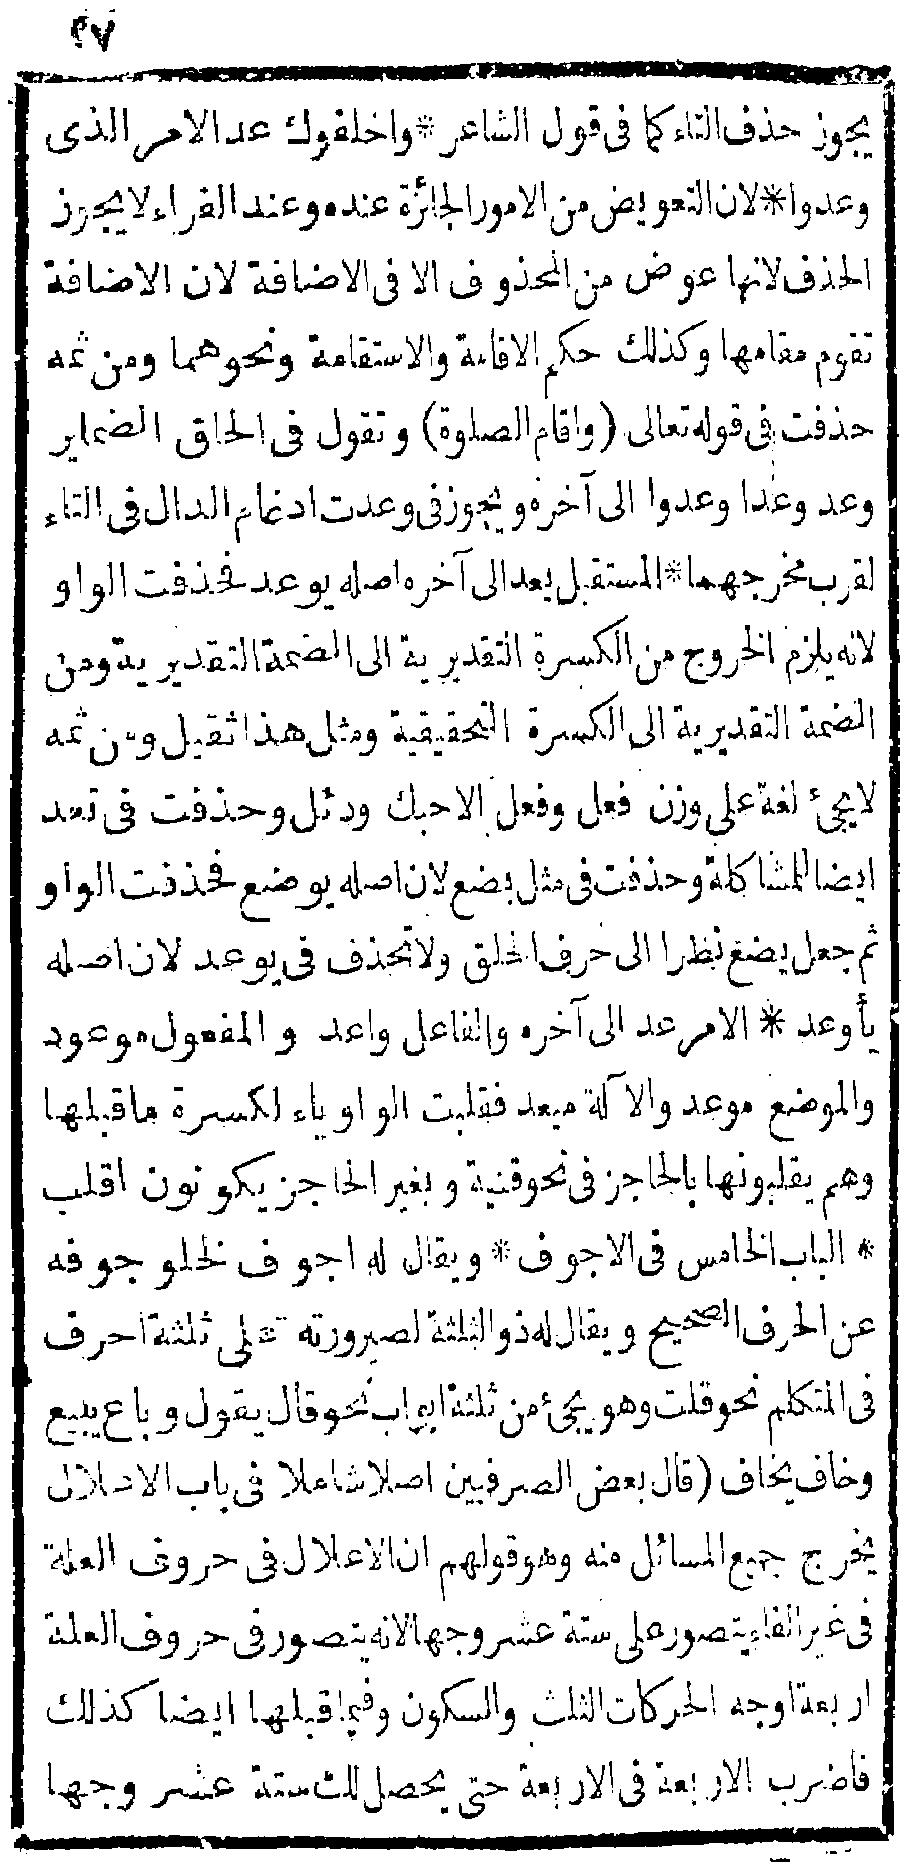 ٢٧
يجوز حذف التاء كما فى قول الشاعر * واخلفوك عد الامر الذى
وعدوا * لان التعويض من الامور الجائزة عنده وعند الفراء لا يجوز
الحذف لانها عوض من المحذوف الا فى الاضافة لان الاضافة
تقوم مقامها وكذلك حكم الاقامة والاستقامة ونحوهما ومن ثمه
حذفت فى قوله تعالى (واقام الصلوة) وتقول فى الحاق الضماير
وعد وعدا وعدوا الى آخره ويجوز فى وعدت ادغام الدال فى التاء
لقرب مخرجهما * المستقبل يعد الى آخره اصله يوعد فحذفت الواو
لانه يلزم الخروج من الكسرة التقديرية الى الضمة التقديرية ومن
الضمة التقديرية الى الكسرة التحقيقية ومثل هذا ثقيل ومن ثمه
لا يجئ لغة على وزن فعل وفعل الا حبك ودئل وحذفت فى تعد
ايضا للمشاكلة وحذفت فى مثل يضع لان اصله يوضع فحذفت الواو
ثم جعل يضع نظرا الى حرف الحلق ولا تحذف فى يوعد لان اصله
يأوعد * الامر عد الى آخره والفاعل واعد و المفعول موعود
والموضع موعد والآلة ميعد فقلبت الواو ياء لكسرة ما قبلها
وهم يقلبونها بالحاجز فى نحو قنية وبغير الحاجز يكونون اقلب
* الباب الخامس فى الاجوف * ويقال له اجوف لخلو جوفه
عن الحرف الصحيح ويقال له ذو الثلثة لصيرورته على ثلثة احرف
فى المتكلم نحو قلت وهو يجئ من ثلثة ابواب نحو قال يقول وباع يبيع
وخاف يخاف (قال بعض الصرفيين اصلا شاملا فى باب الاعلال
يخرج جميع المسائل منه وهو قولهم ان الاعلال فى حروف العلة
فى غير الفاء يتصور على ستة عشر وجها لانه يتصور فى حروف العلة
اربعة اوجه الحركات الثلث والسكون وفيما قبلها ايضا كذلك
فاضرب الاربعة فى الاربعة حتى يحصل لك ستة عشر وجها